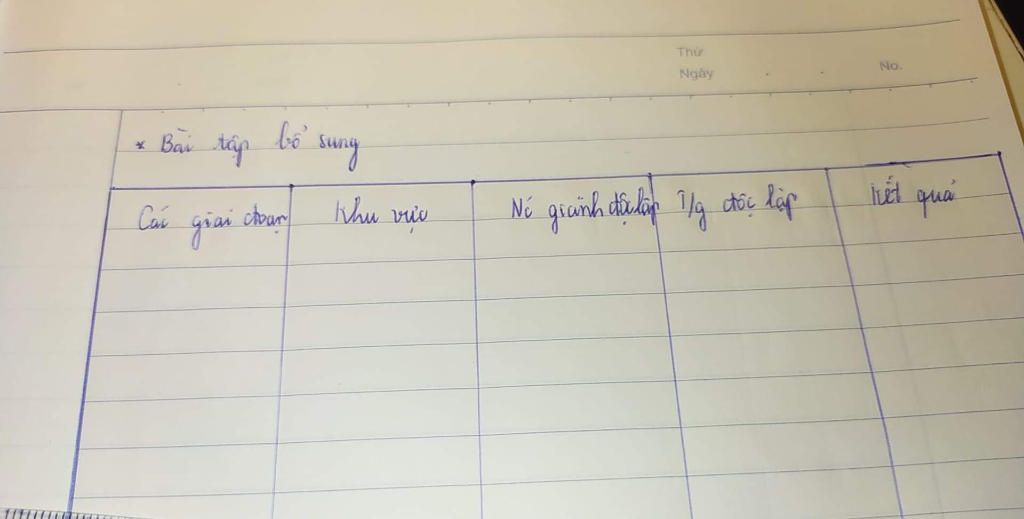 Thứ
Ngày
No.
* Bài tập bổ sung
Các giai đoạn
Khu vực
Nc giành độc lập
T/g độc lập
Kết quả